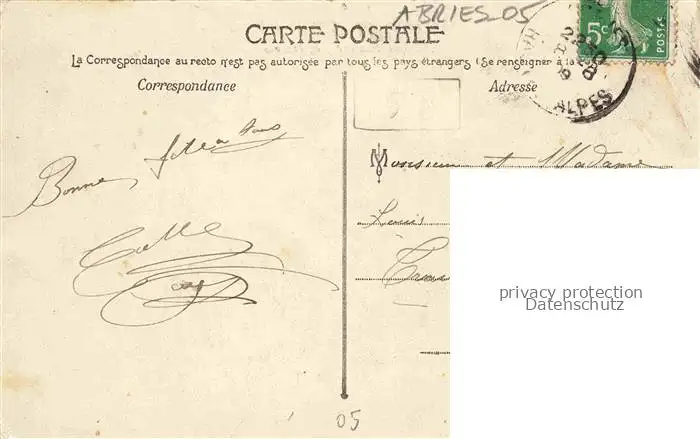 ABRIES 05
CARTE POSTALE
La Correspondance au recto n'est pas autorisée par tous les pays étrangers (Se renseigner à la
Correspondance
Adresse
5c
POSTES
ALPES
Bonne
Monsieur et Madame
Louis
privacy protection
Datenschutz
05